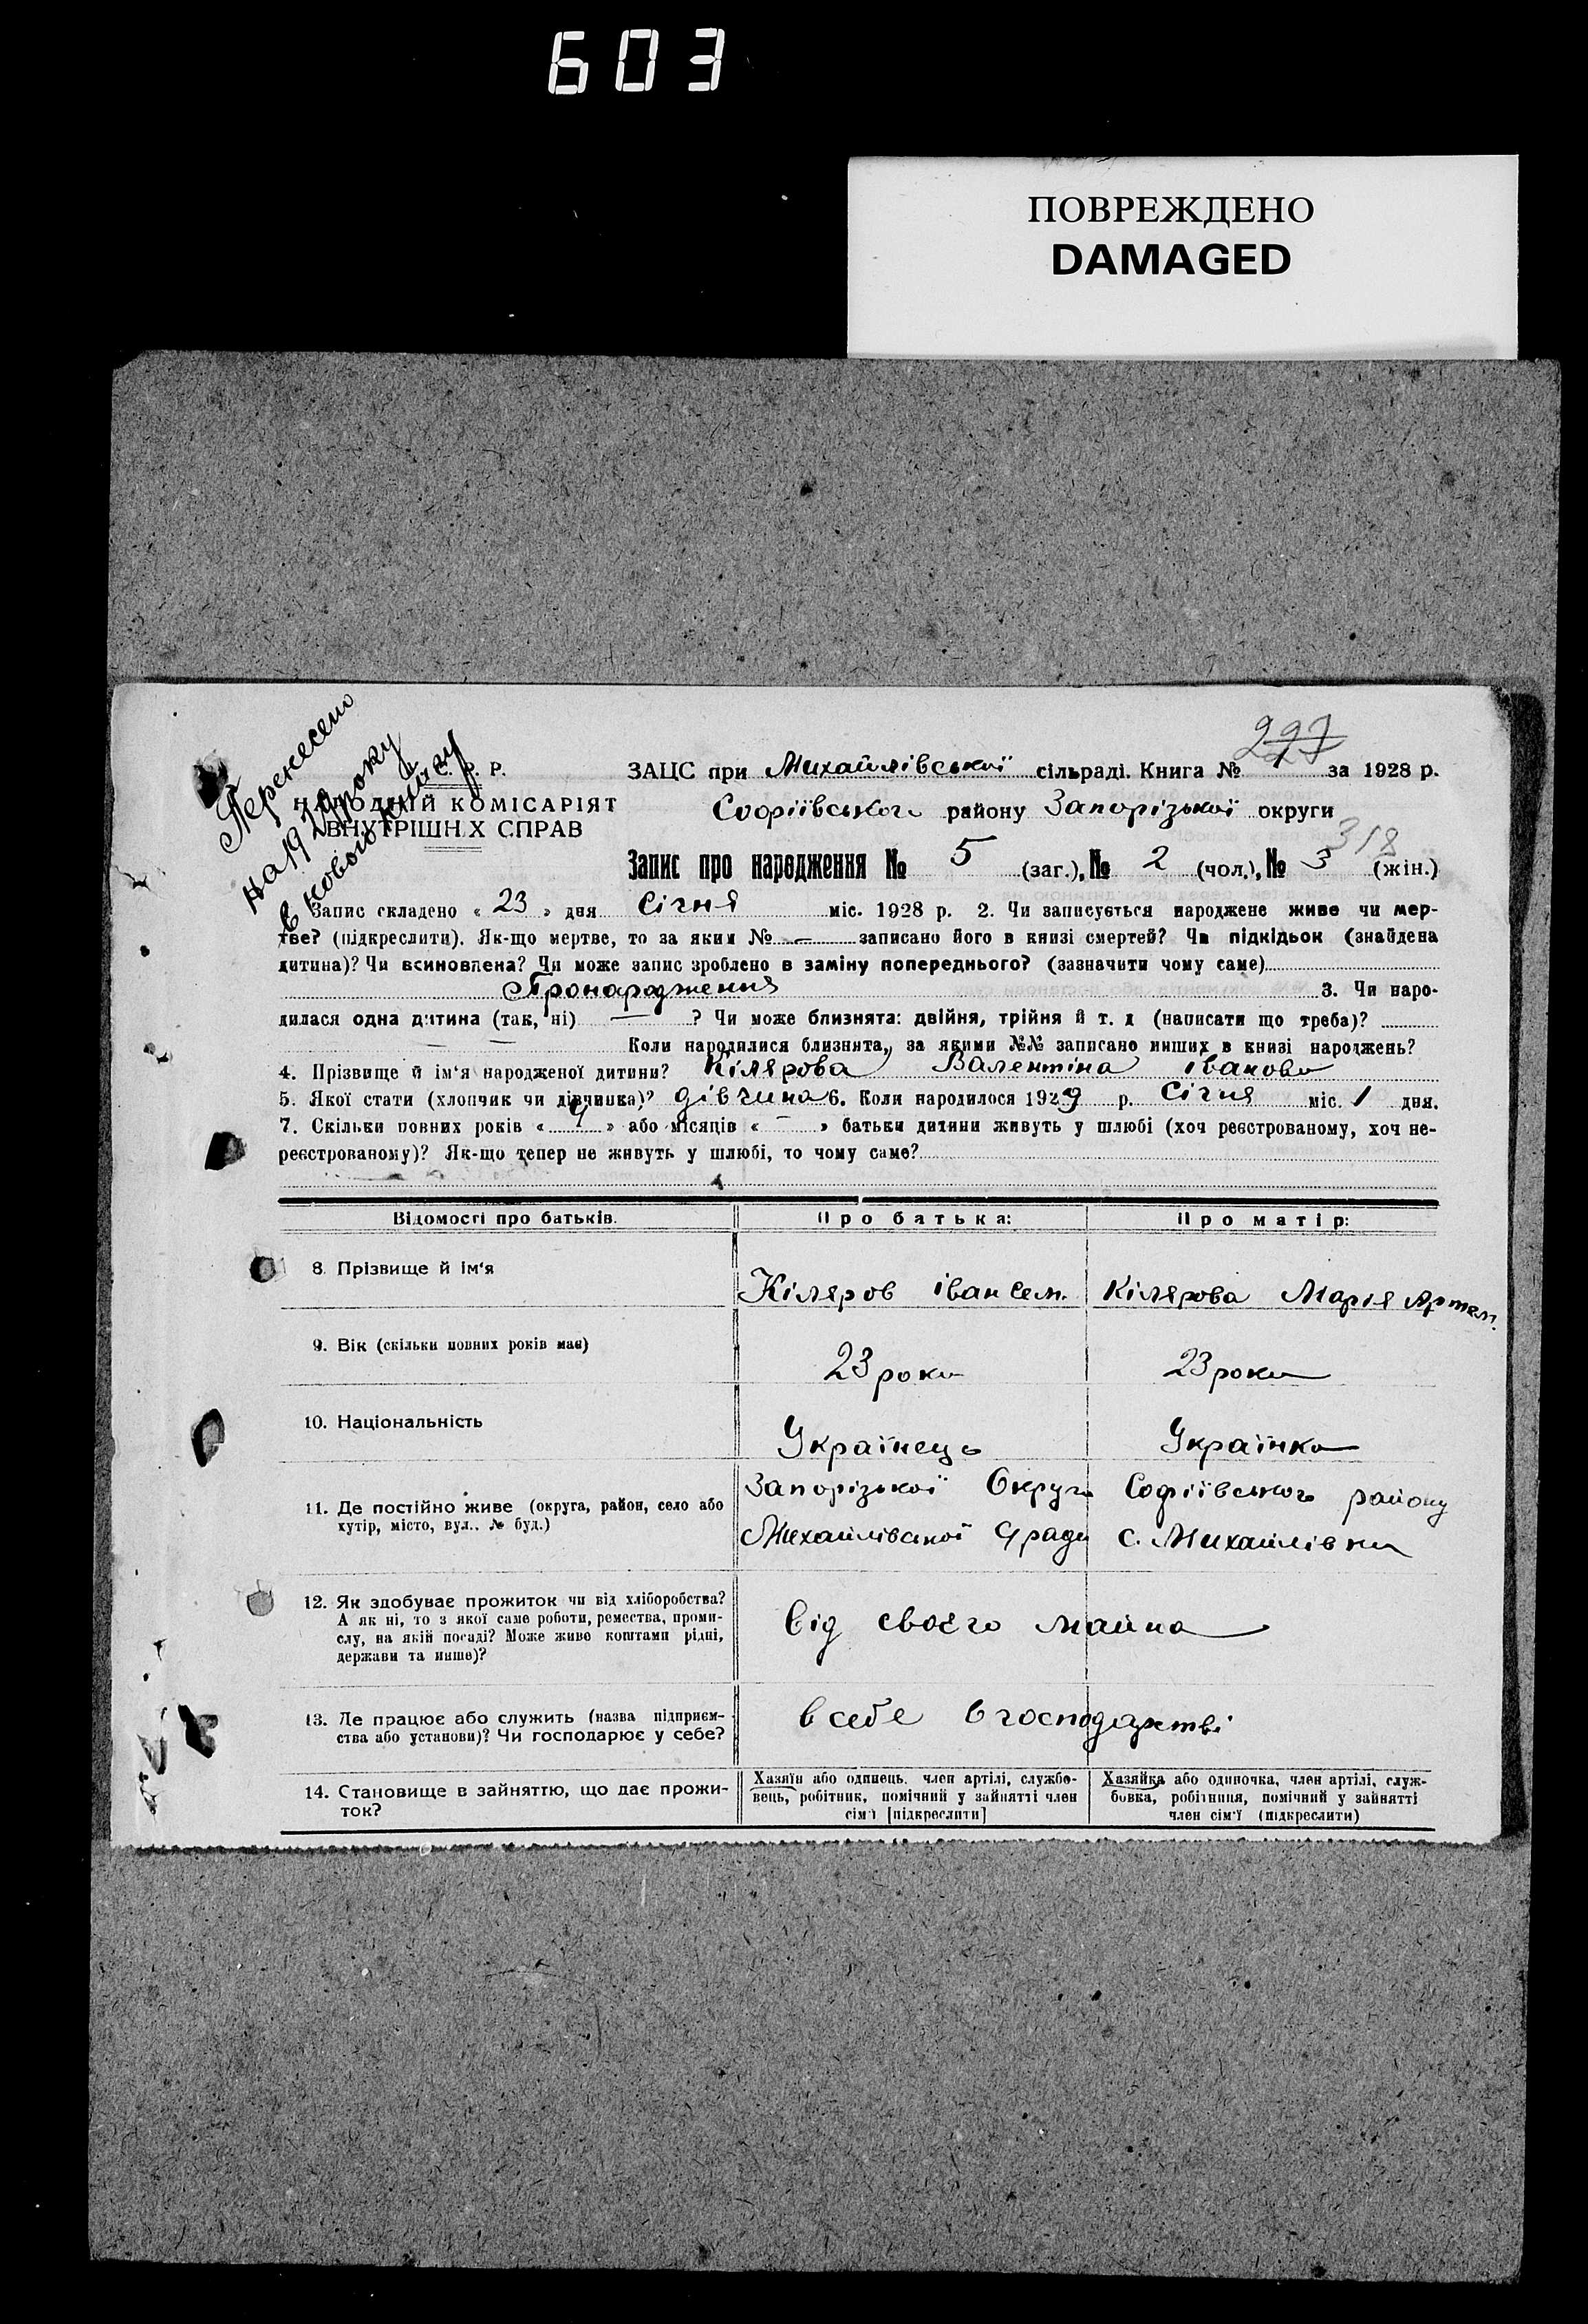 603
ПОВРЕЖДЕНО
DAMAGED
Перенесено
на 1929 року
в нової книгу
297
Р.
НАРОДНІЙ КОМІСАРІЯТ
ВНУТРІШН.Х СПРАВ
ЗАЦС при Михайлівської сільраді. Книга № 1 за 1928 р.
Софіївського району Запорізької округи
318
Запис про народження № 5 (заг.), № 2 (чол.), № 3 (жін.)
Запис складено « 23 » дня Січня міс. 1928 р. 2. Чи записується народжене живе чи мер-
тве? (підкреслити). Як-що мертве, то за яким № — записано його в книзі смертей? Чи підкідьок (знайдена
дитина)? Чи всиновлена? Чи може запис зроблено в заміну попереднього? (зазначити чому саме)
Пронародження 3. Чи наро-
дилася одна дитина (так, ні) — ? Чи може близнята: двійня, трійня й т. д (написати що треба)?
— — Коли народилися близнята, за якими №№ записано инших в книзі народжень?
4. Прізвище й ім'я народженої дитини? Кілярова Валентіна Іванова
5. Якої стати (хлопчик чи дівчинка)? дівчина 6. Коли народилося 1929 р. Січня міс. 1 дня.
7. Скільки повних років « 4 » або місяців « — » батьки дитини живуть у шлюбі (хоч реєстрованому, хоч не-
реєстрованому)? Як-що тепер не живуть у шлюбі, то чому саме?
Відомості про батьків. Про батька: Про матір:
8. Прізвище й ім'я Кіляров Іван Сем. Кілярова Марія Артем.
9. Вік (скільки повних років має) 23 роки 23 роки
10. Національність Українець Українка
11. Де постійно живе (округа, район, село або
хутір, місто, вул.. № буд.)
Запорізької Округи Софіївського району
Михайлівської с. Михайлівки
12. Як здобуває прожиток чи від хліборобства?
А як ні, то з якої саме роботи, ремества, проми-
слу, на якій посаді? Може живе коштами рідні,
держави та инше)?
Від своєго майна
13. Де працює або служить (назва підприєм-
ства або установи)? Чи господарює у себе?
в себе в господарстві
14. Становище в зайняттю, що дає прожи-
ток?
Хазяїн або одинець. член артілі, службо-
вець, робітник, помічний у зайнятті член
сім'ї [підкреслити]
Хазяйка або одиночка, член артілі, служ-
бовка, робітниця, помічний у зайнятті
член сім'ї (підкреслити)